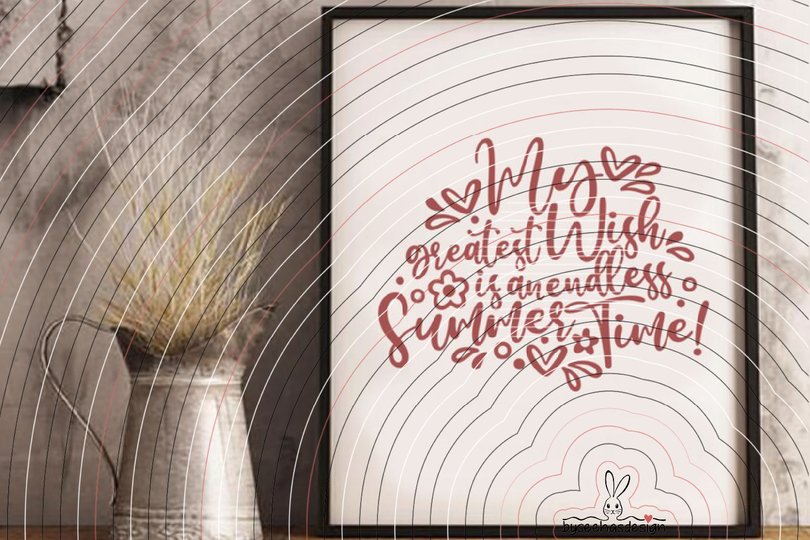 My
greatest Wish
is an endless
Summer Time!
byseelnasdesign